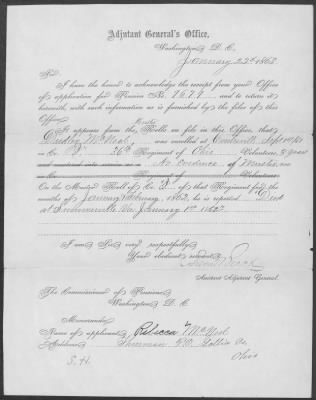 Adjutant General's Office,
Washington, D. C.
January 22d 1863
Sir:
I have the honor to acknowledge the receipt from your Office
of application for Pension No. 7677, and to return it
herewith, with such information as is furnished by the files of this
Office.
It appears from the Rolls on file in this Office, that
Dudley McNeal was enrolled at
in Co. 36th Regiment of Ohio Volunteers, 3 years
No evidence of Muster in
Regiment of Volunteers
On the Muster Roll of Co. of that Regiment, for the
months of January & February, 1862, he is reported Died
at Summersville, Va. January 1862
I am, Sir, very respectfully,
Your obedient servant,
Assistant Adjutant General.
The Commissioner of Pensions
Washington, D. C.
Memoranda:
Name of applicant, Rebecca McNeal
Address, P.O. Gallia Co.
Ohio